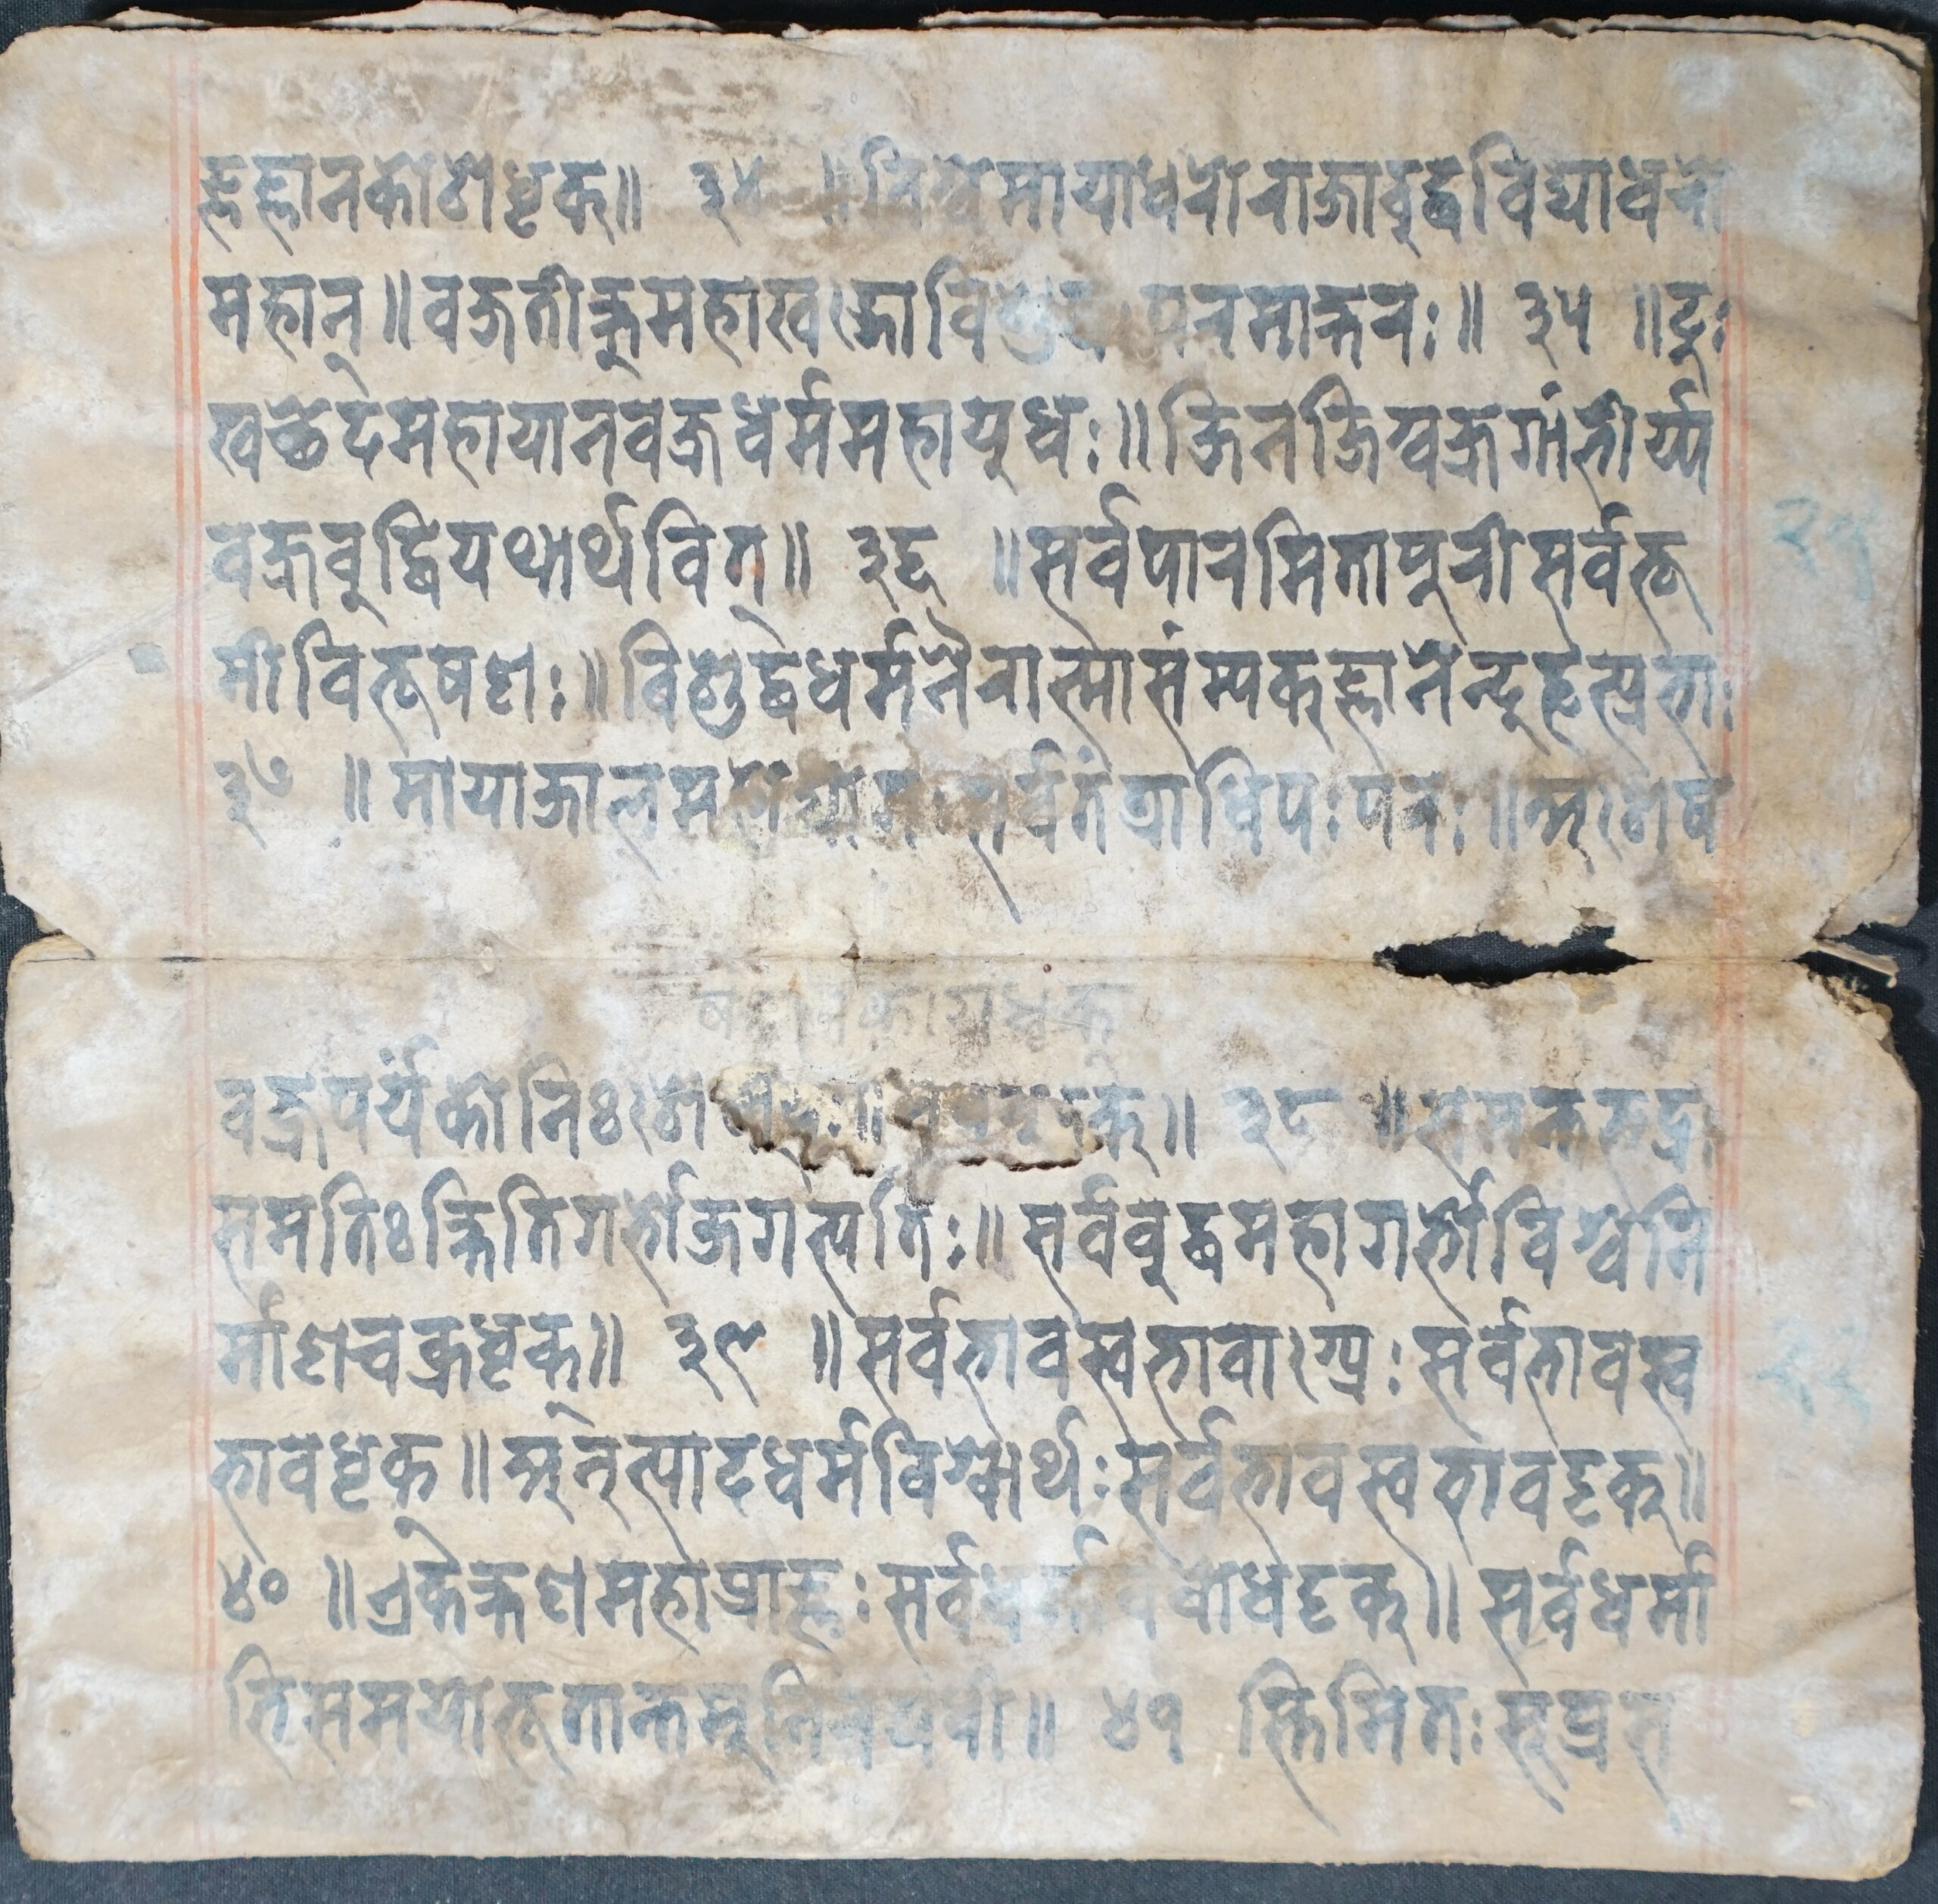 ज्ञज्ञानकोशेधृक्॥ ३४ ॥विश्वमायाधरोराजाबुद्धविद्याधरो
महान्॥वज्रतीक्ष्णमहाखड्गोविशुद्धः परमाक्षरः॥ ३५ ॥दुः
खच्छेदमहायानवज्रधर्ममहायुधः॥जिनजिग्वज्रगांभीर्य्य
वज्रबुद्धियथार्थवित्॥ ३६ ॥सर्वपारमितापुरीसर्वभू
मीविभूषणः॥विशुद्धधर्मनैरात्मासंम्यक्ज्ञानेन्दुहृत्प्रभाः
३७ ॥मायाजालमहो सर्वतंत्राधिपःपरः॥अशेष
षज्ञानकायधृक्
वज्रपर्यंकोनिःशे धृक्॥ ३८ ॥समन्तभद्र
समतिःक्षितिगर्भोजगत्पतिः॥सर्वबुद्धमहागर्भोविश्वनि
र्माणचक्रधृक्॥ ३९ ॥सर्वभावस्वभावाग्रः सर्वभावस्व
भावधृक्॥अनुत्पादधर्मविश्वार्थःसर्वभावस्वभावदृक्॥
४० ॥एकक्षणमहाप्राज्ञःसर्वधर्मावबोधदृक्॥सर्वधर्मा
भिसमयोभूतान्तमुनिरग्रधी॥ ४१ स्तिमितःसुप्रस